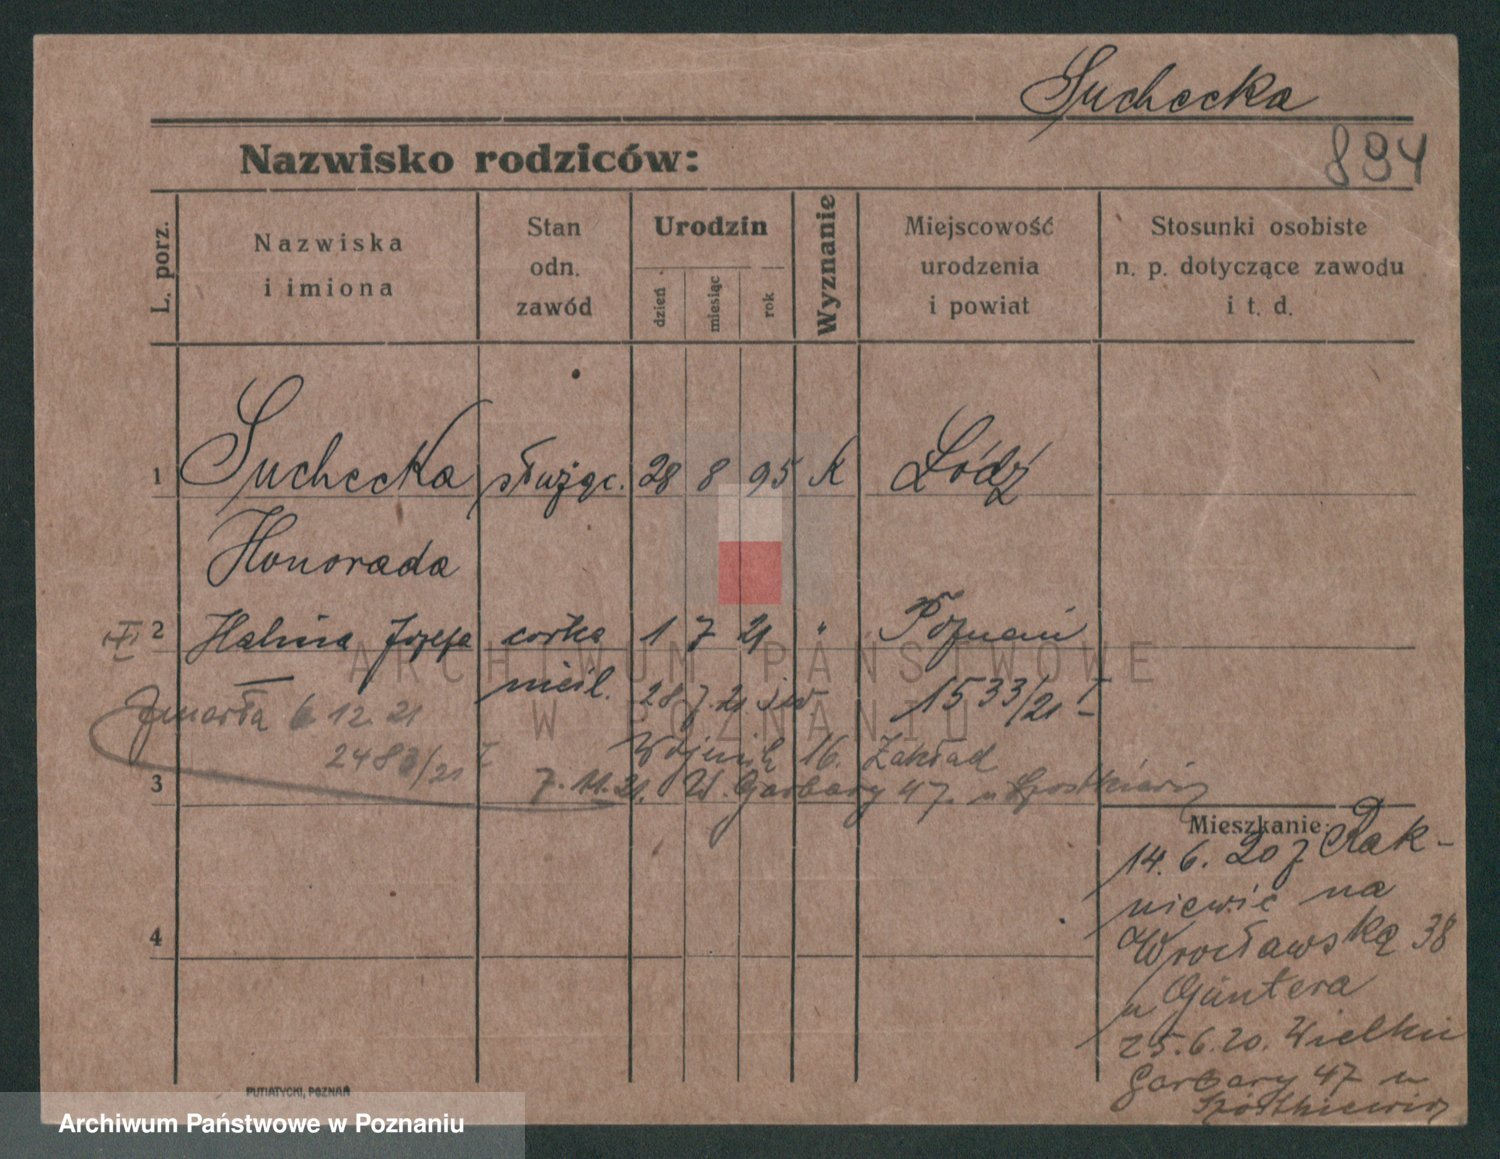 Suchecka
894
Nazwisko rodziców:
L. porz.
Nazwiska
i imiona
Stan
odn.
zawód
Urodzin
dzień
miesiąc
rok
Wyznanie
Miejscowość
urodzenia
i powiat
Stosunki osobiste
n. p. dotyczące zawodu
i t. d.
1 Suchecka służąc. 28 8 95 K Łódź
Honorada
2 Halina Józefa córka 1 7 21 " Poznań
nieśl. 28 7. 21 1533/21 I
Zmarła 6 12. 21
2483/21 I
16. Zakład
3 7. 11. 21. W. Garbary 47. u
Mieszkanie:
14. 6. 20 z Rak-
niewic na
Wrocławską 38
u Güntera
25. 6. 20. Wielkie
Garbary 47 u
Spótkiewicz
4
PUTIATYCKI, POZNAŃ
ARCHIWUM PAŃSTWOWE
W POZNANIU
Archiwum Państwowe w Poznaniu